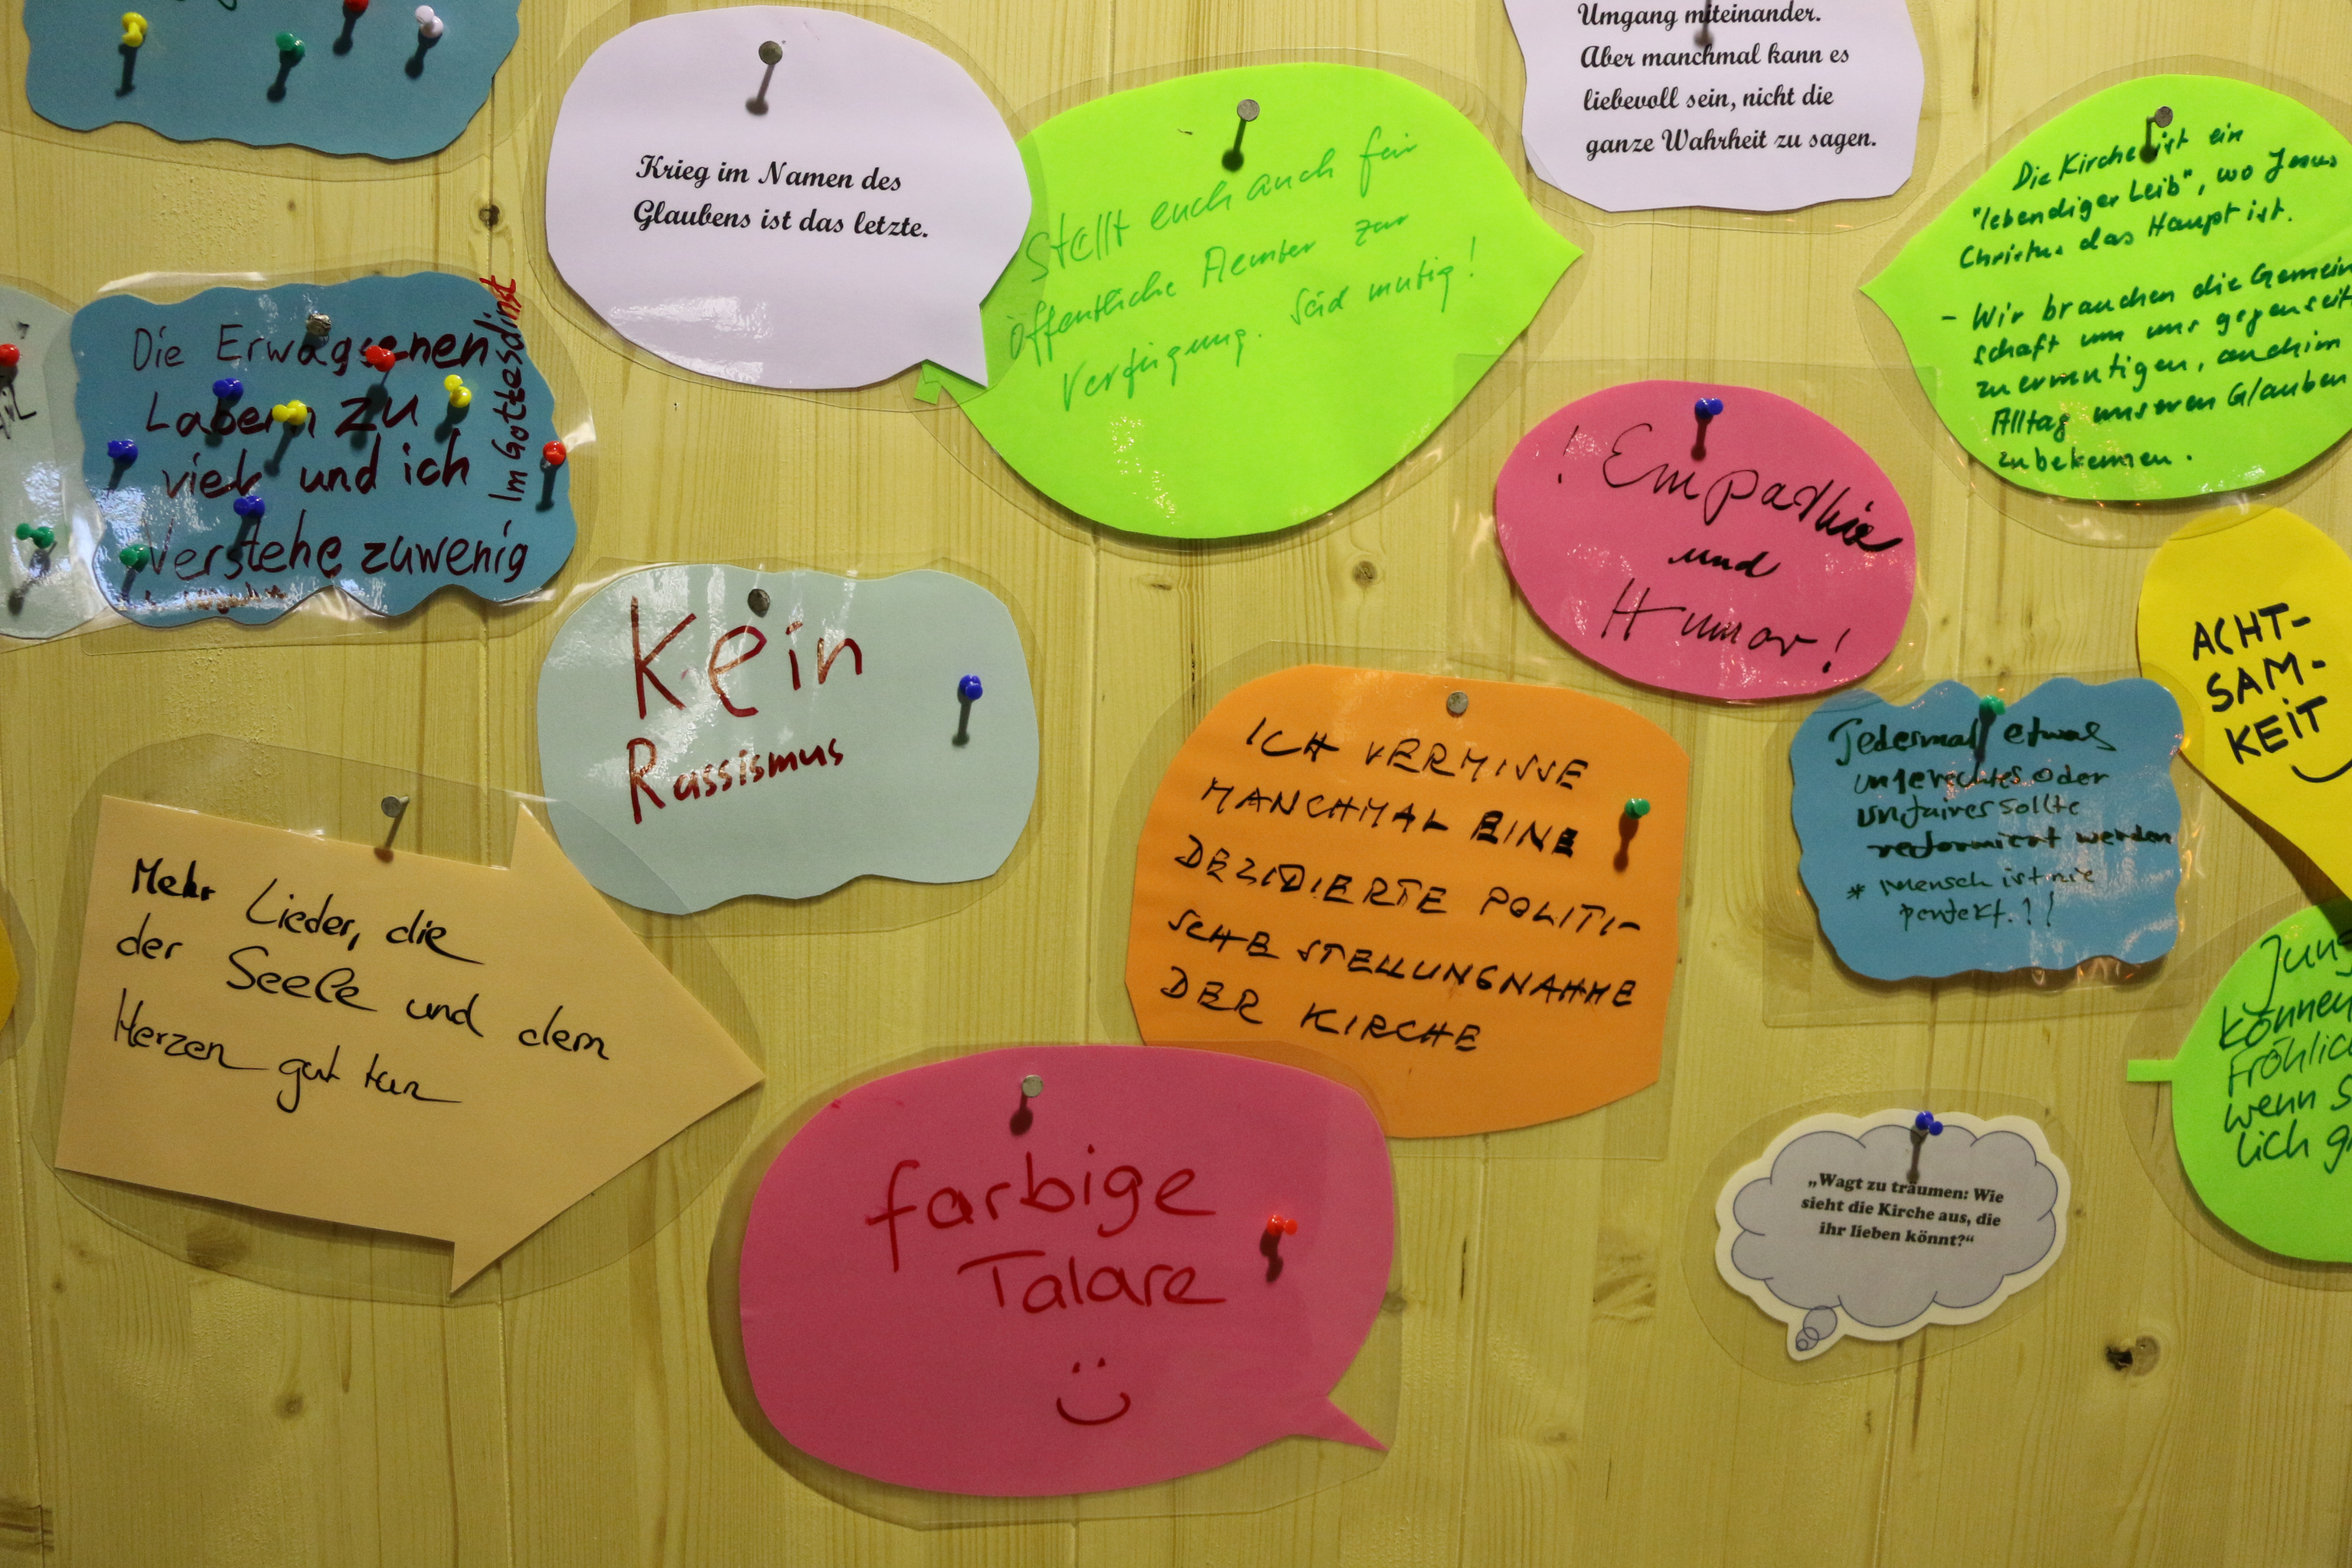 Krieg im Namen des
Glaubens ist das letzte.
Stellt euch auch für
öffentliche Aemter zur
Verfügung. Seid mutig!
Umgang miteinander.
Aber manchmal kann es
liebevoll sein, nicht die
ganze Wahrheit zu sagen.
Die Kirche ist ein
"lebendiger Leib", wo Jesus
Christus das Haupt ist.
- Wir brauchen die Gemein
schaft um uns gegenseit
zu ermutigen, auch im
Alltag unseren Glauben
zu bekennen.
Die Erwagsenen
Labern zu
viel und ich
Verstehe zuwenig
Im Gottesdinst
! Empathie
und
Humor!
Kein
Rassismus
ACHT-
SAM-
KEIT
ICH VERMISSE
MANCHMAL EINE
DEZIDIERTE POLITI-
SCHE STELLUNGNAHME
DER KIRCHE
Jedesmal etwas
ungerechtes oder
unfaires sollte
reformiert werden
* Mensch ist nie
perfekt.!!
Mehr Lieder, die
der Seele und dem
Herzen gut tun
Jung
können
Fröhlic
wenn s
lich g
farbige
Talare
„Wagt zu träumen: Wie
sieht die Kirche aus, die
ihr lieben könnt?“